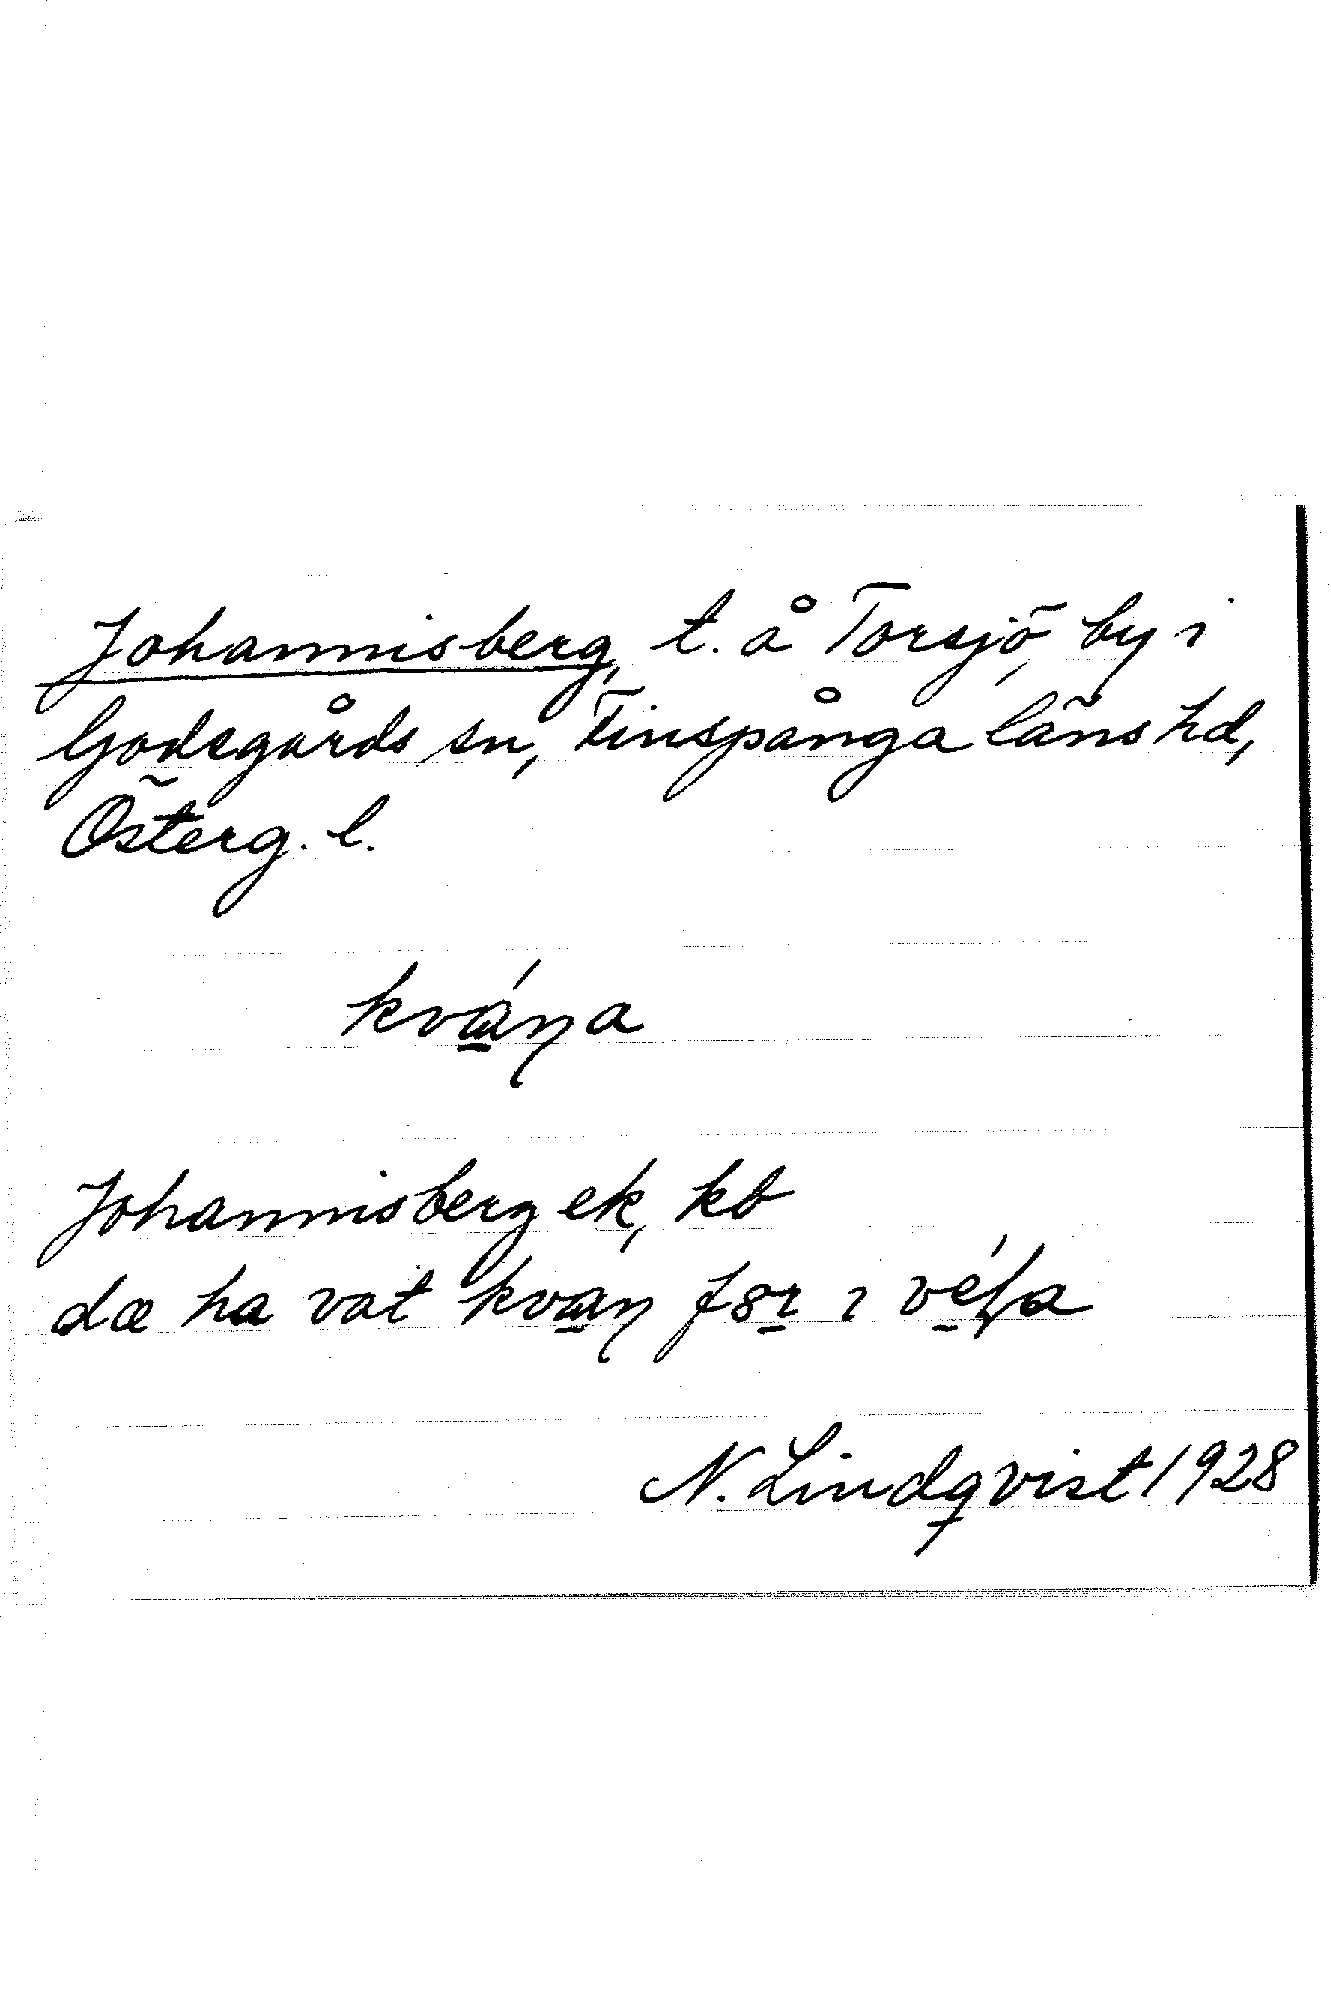 Johannisberg, t. å Torsjö, by i
Godegårds sn, Finspånga läns hd,
Österg. l.
kvána
Johannisberg ek, kb
dæ ha vat kvan för i
N. Lindqvist 1928